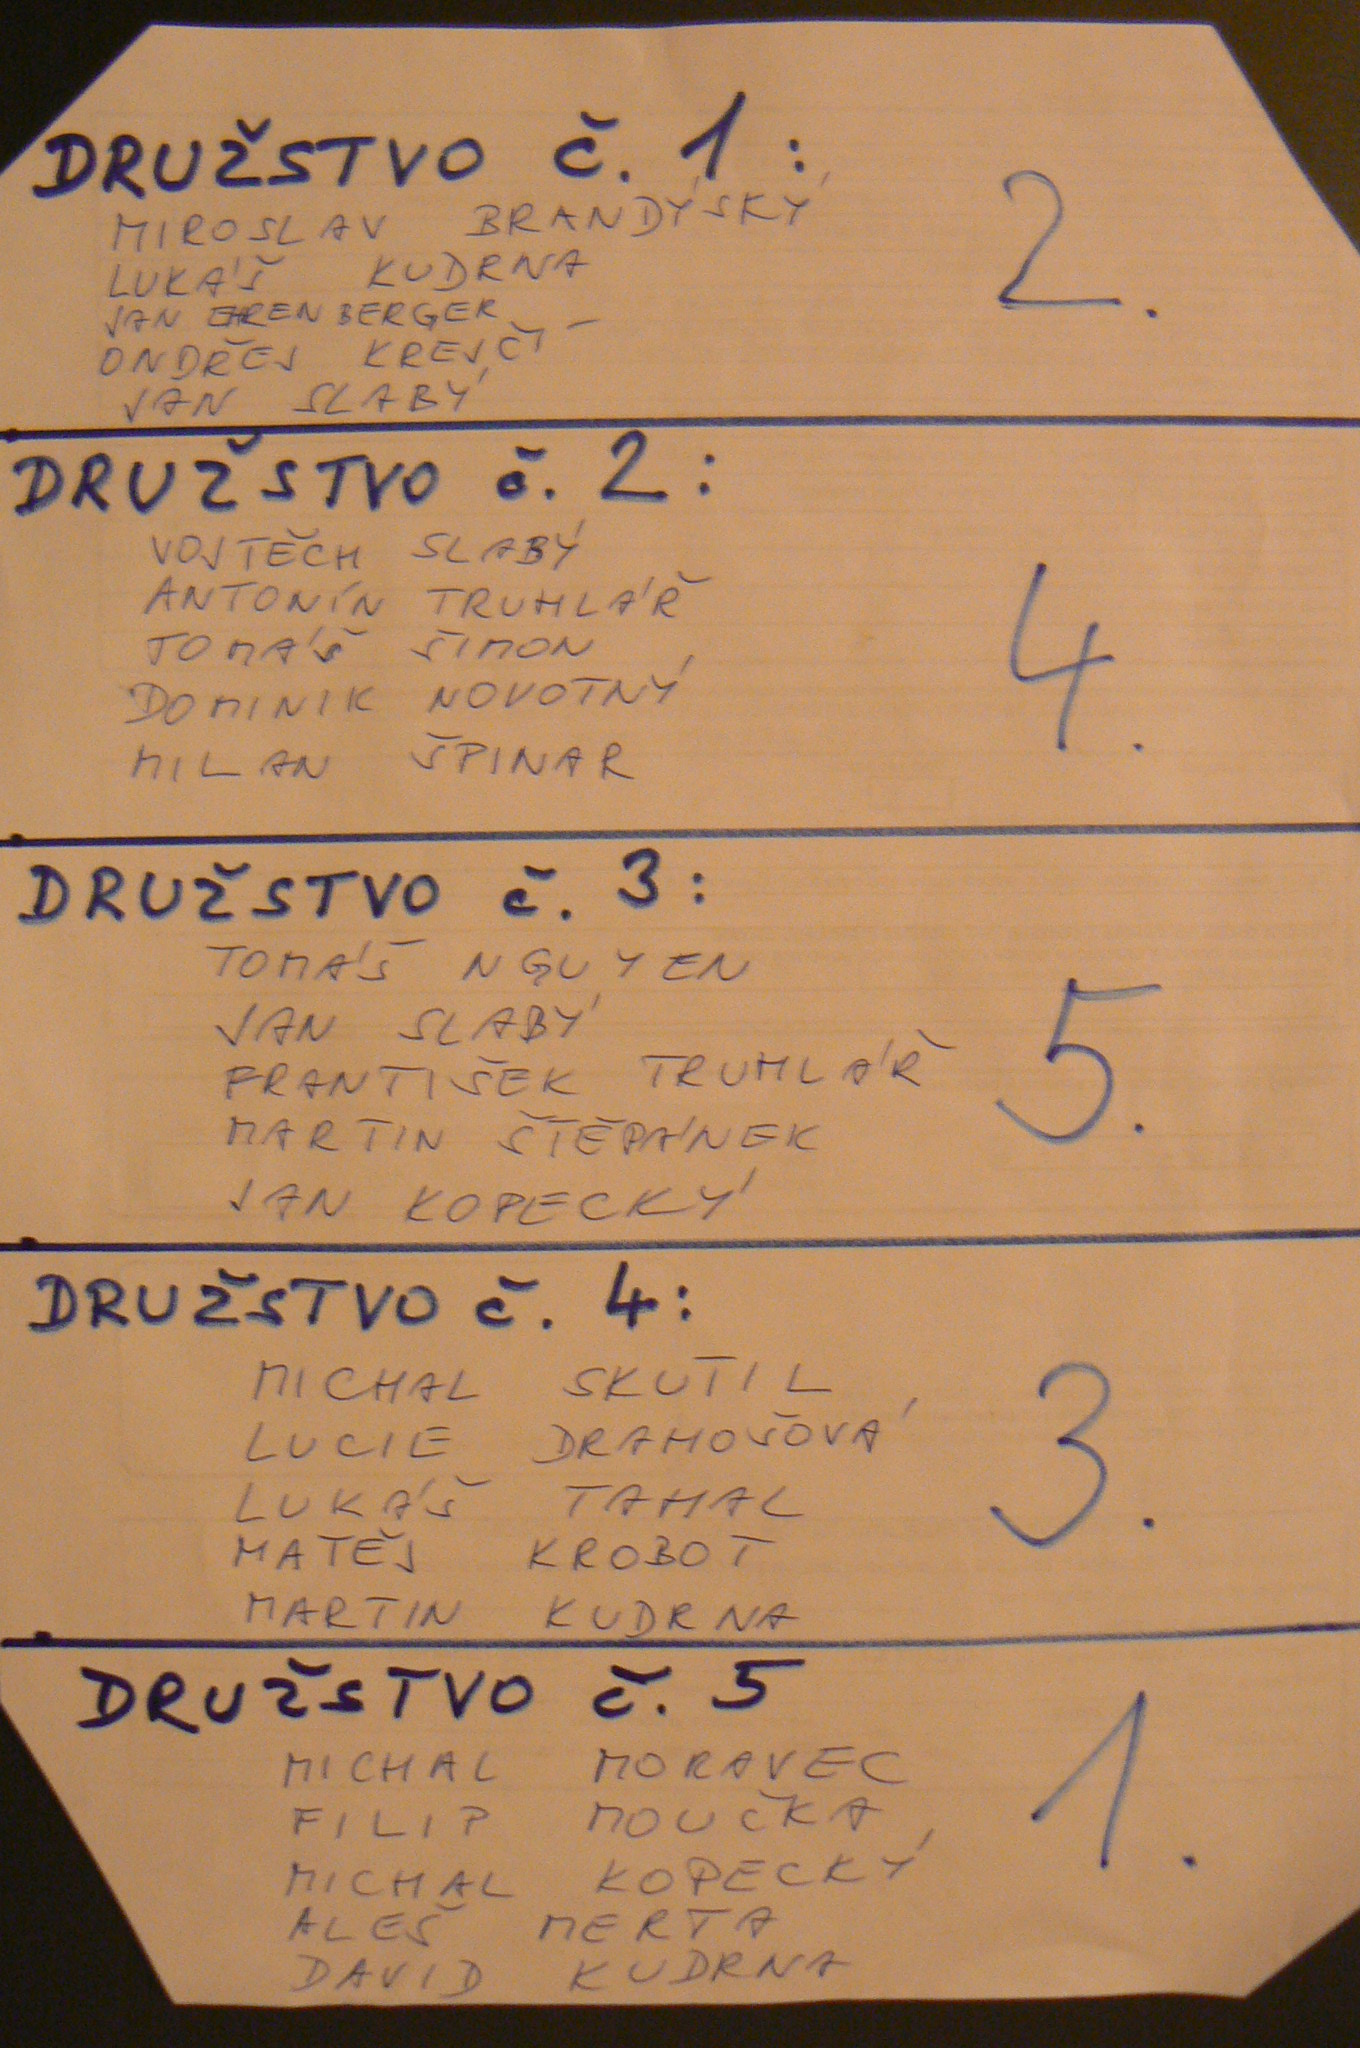 DRUŽSTVO č. 1:
MIROSLAV BRANDÝSKÝ
2.
LUKÁŠ KUDRNA
JAN EHRENBERGER
ONDŘEJ KREJČÍ
JAN SLABÝ
DRUŽSTVO č. 2:
VOJTĚCH SLABÝ
ANTONÍN TRUHLÁŘ
TOMÁŠ ŠIMON
4.
DOMINIK NOVOTNÝ
MILAN ŠPINAR
DRUŽSTVO č. 3:
TOMÁŠ NGUYEN
JAN SLABÝ
FRANTIŠEK TRUHLÁŘ
5.
MARTIN ŠTĚPÁNEK
JAN KOPECKÝ
DRUŽSTVO č. 4:
MICHAL SKUTIL
LUCIE DRAHOŠOVÁ
3.
LUKÁŠ TAHAL
MATĚJ KROBOT
MARTIN KUDRNA
DRUŽSTVO č. 5
MICHAL MORAVEC
1.
FILIP MOUČKA
MICHAL KOPECKÝ
ALEŠ MERTA
DAVID KUDRNA